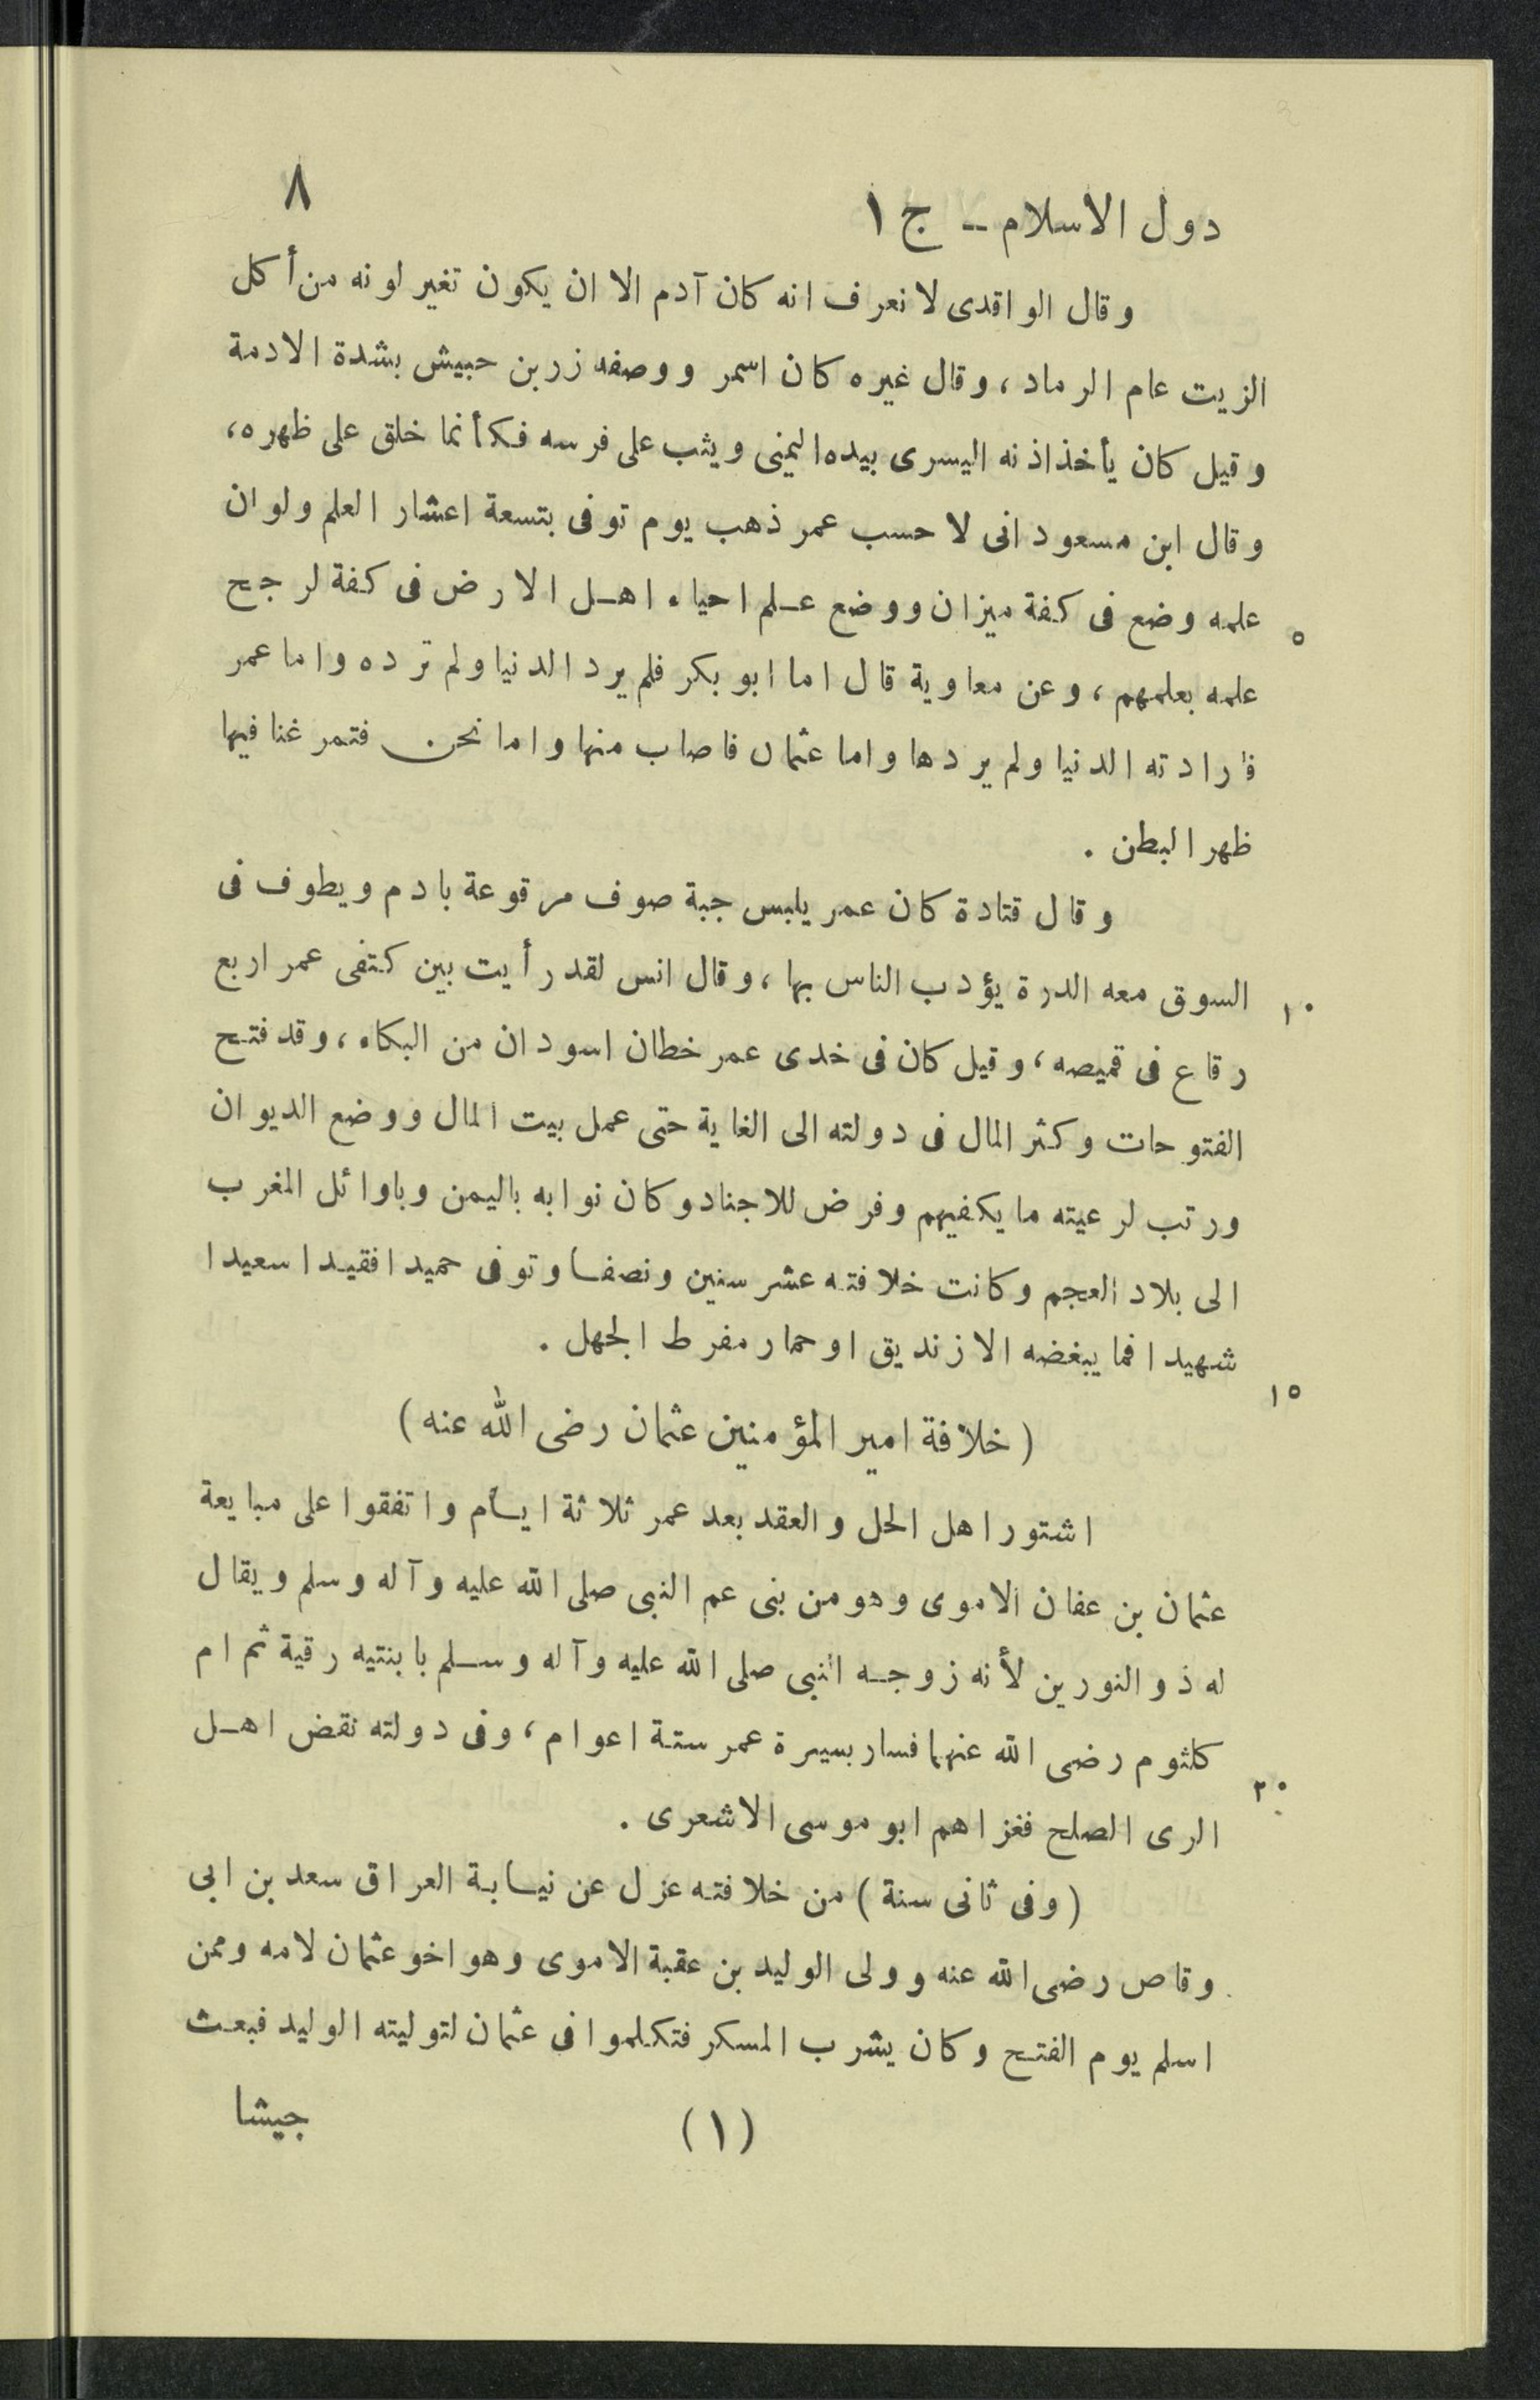 دول الاسلام -- ج ١ ٨
وقال الواقدى لا نعرف انه كان آدم الا ان يكون تغير لونه من أكل
الزيت عام الرماد ، وقال غيره كان اسمر ووصفه زر بن حبيش بشدة الادمة
وقيل كان يأخذ اذنه اليسرى بيده اليمنى ويثب على فرسه فكأنما خلق على ظهره ،
وقال ابن مسعود انى لا حسب عمر ذهب يوم توفى بتسعة اعشار العلم ولو ان
علمه وضع فى كفة ميزان ووضع علم احياء اهل الارض فى كفة لرجح ٥
علمه بعلمهم ، وعن معاوية قال اما ابو بكر فلم يرد الدنيا ولم ترده واما عمر
فارادته الدنيا ولم يردها واما عثمان فاصاب منها واما نحن فتمرغنا فيها
ظهر البطن .
وقال قتادة كان عمر يلبس جبة صوف مرقوعة بادم ويطوف فى
السوق معه الدرة يؤدب الناس بها ، وقال انس لقد رأيت بين كتفى عمر اربع ١٠
رقاع فى قميصه ، وقيل كان فى خدى عمر خطان اسودان من البكاء ، وقد فتح
الفتوحات وكثر المال فى دولته الى الغاية حتى عمل بيت المال ووضع الديوان
ورتب لرعيته ما يكفيهم وفرض للاجناد وكان نوابه باليمن وباوائل المغرب
الى بلاد العجم وكانت خلافته عشر سنين ونصفا وتوفى حميدا فقيدا سعيدا
شهيدا فما يبغضه الا زنديق او حمار مفرط الجهل . ١٥
( خلافة امير المؤمنين عثمان رضى الله عنه )
اشتور اهل الحل والعقد بعد عمر ثلاثة ايام واتفقوا على مبايعة
عثمان بن عفان الاموى وهو من بنى عم النبى صلى الله عليه وآله وسلم ويقال
له ذو النورين لأنه زوجه النبى صلى الله عليه وآله وسلم بابنتيه رقية ثم ام
كلثوم رضى الله عنهما فسار بسيرة عمر ستة اعوام ، وفى دولته نقض اهل ٢٠
الرى الصلح فغزاهم ابو موسى الاشعرى .
( وفى ثانى سنة ) من خلافته عزل عن نيابة العراق سعد بن ابى
وقاص رضى الله عنه وولى الوليد بن عقبة الاموى وهو اخو عثمان لامه وممن
اسلم يوم الفتح وكان يشرب المسكر فتكلموا فى عثمان لتوليته الوليد فبعث
(١) جيشا